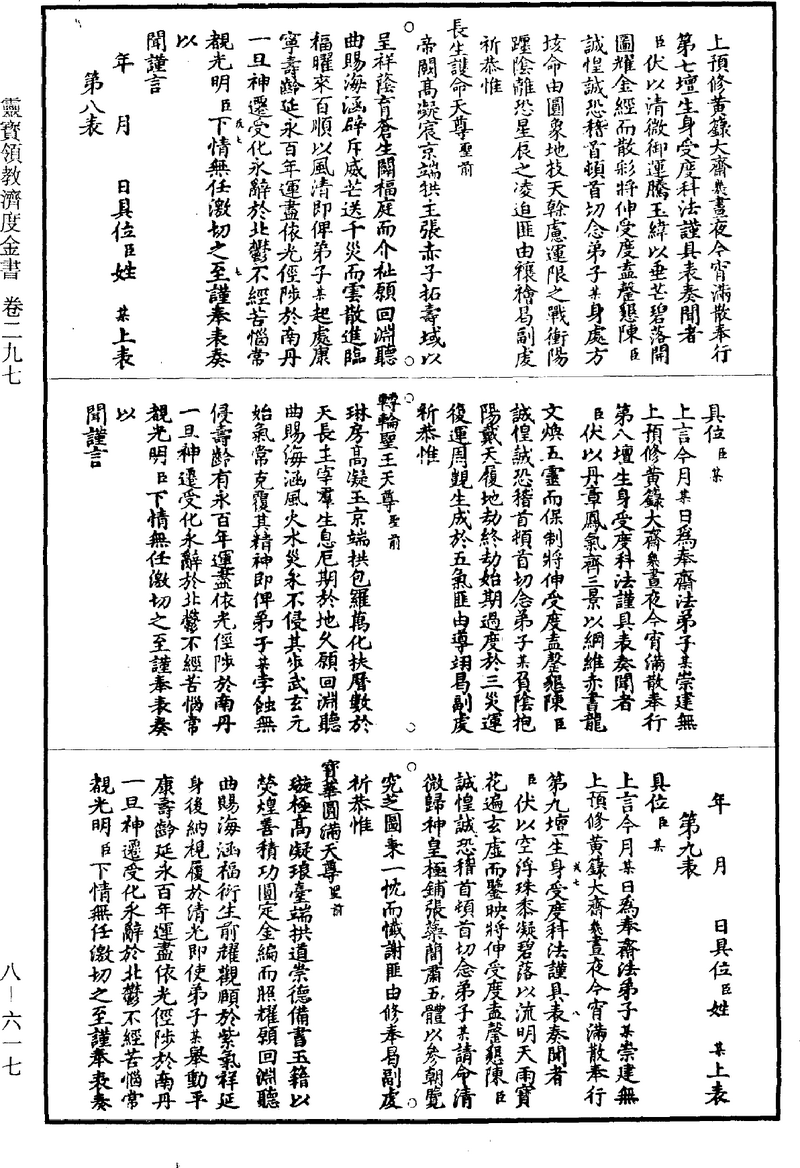 上預修黃籙大齋幾晝夜今宵滿散奉行
第七壇生身受度科法謹具表奏聞者
臣伏以清微御運騰玉緯以垂芒碧落開
圖耀金經而散彩將伸受度盍罄懇陳臣
誠惶誠恐稽首頓首切念弟子某身處方
垓命由圓象地枝天榦慮運限之戰衝陽
躔陰離恐星辰之凌迫匪由禳禬曷副虔
祈恭惟
長生護命天尊聖前
帝闕高凝宸京端拱主張赤子拓壽域以
呈祥蔭育蒼生闢福庭而介祉願回淵聽
曲賜海涵辟斥威芒送千災而雲散進臨
福曜來百順以風清即俾弟子某起處康
寧壽齡延永百年運盡依光徑陟於南丹
一旦神遷受化永辭於北鬱不經苦惱常
覩光明臣下情無任激切之至謹奉表奏
以
聞謹言
年 月 日具位臣姓 某上表
第八表
具位臣某
上言今月某日為奉齋法弟子某崇建無
上預修黃籙大齋幾晝夜今宵滿散奉行
第八壇生身受度科法謹具表奏聞者
臣伏以丹章鳳氣齊三景以綱維赤書龍
文煥五靈而保制將伸受度盍罄懇陳臣
誠惶誠恐稽首頓首切念弟子某負陰抱
陽戴天履地劫終劫始期過度於三災運
復運周覬生成於五氣匪由導翊曷副虔
祈恭惟
轉輪聖王天尊聖前
琳房高凝玉京端拱包羅萬化扶曆數於
天長主宰羣生息厄期於地久願回淵聽
曲賜海涵風火水災永不侵其步武玄元
始氣常克覆其精神即俾弟子某孛蝕無
侵壽齡有永百年運盡依光徑陟於南丹
一旦神遷受化永辭於北鬱不經苦惱常
覩光明臣下情無任激切之至謹奉表奏
以
聞謹言
年 月 日具位臣姓 某上表
第九表
具位臣某
上言今月某日為奉齋法弟子某崇建無
上預修黃籙大齋幾晝夜今宵滿散奉行
第九壇生身受度科法謹具表奏聞者
臣伏以空浮珠黍凝碧落以流明天雨寶
花遍玄虛而鑒映將伸受度盍罄懇陳臣
誠惶誠恐稽首頓首切念弟子某請命清
微歸神皇極鋪張蘂簡肅五體以參朝覽
究芝圖秉一忱而懺謝匪由修奉曷副虔
祈恭惟
寶華圓滿天尊聖前
璇極高凝琅臺端拱道崇德備書玉籍以
熒煌善積功圓定金編而照耀願回淵聽
曲賜海涵福衍生前耀觀頤於紫氣祥延
身後納視履於清光即使弟子某舉動平
康壽齡延永百年運盡依光徑陟於南丹
一旦神遷受化永辭於北鬱不經苦惱常
覩光明臣下情無任激切之至謹奉表奏
靈寶領教濟度金書 卷二九七
八－六一七